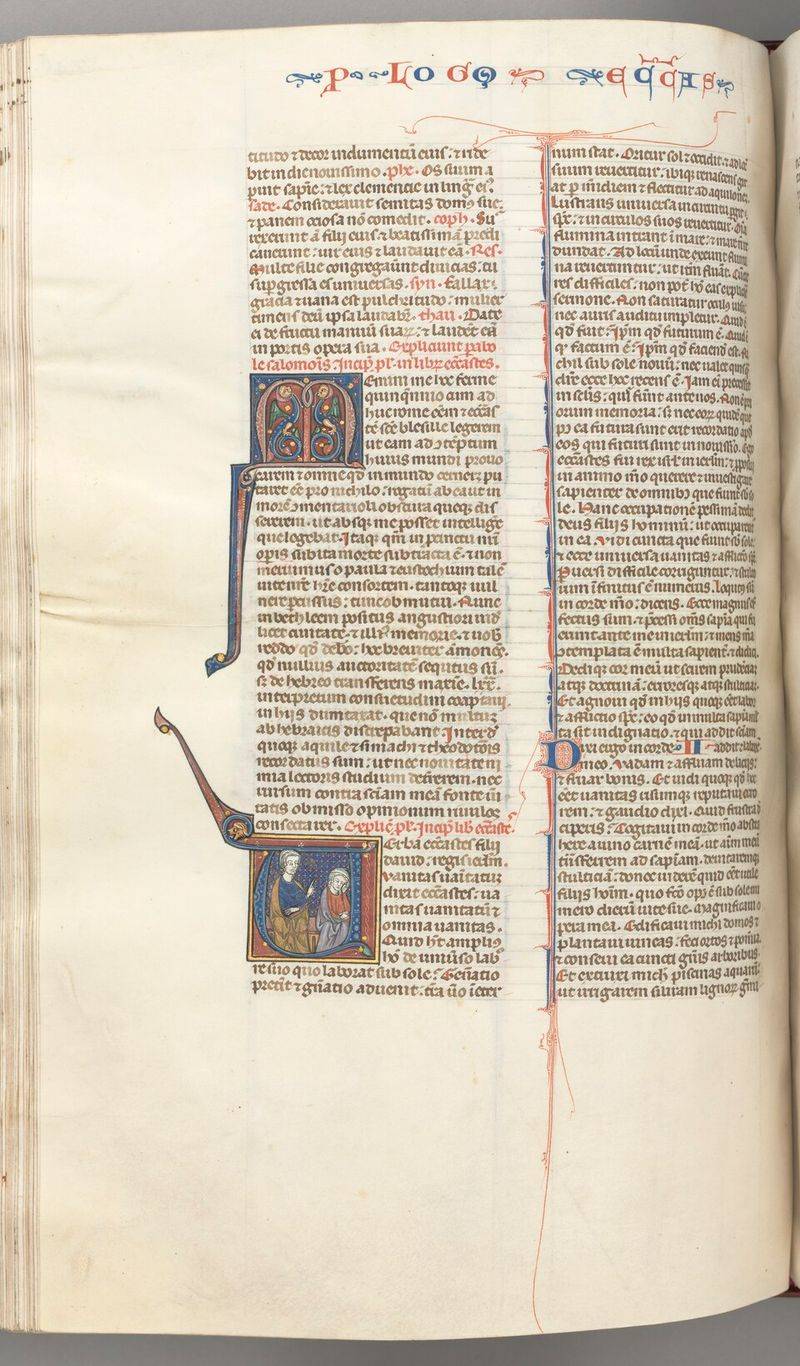 P LOGO ECCAS
titudo ⁊ decor indumentū eius: ⁊ ride
bit in die nouissimo. phe. Os suum a
peruit sapīe: ⁊ lex clementie in ling̃ ei⁹.
sade. Considerauit semitas dom⁹ sue:
⁊ panem ociosa nō comedit. coph. Su
rexerunt filij eius ⁊ beatissimā predi
cauerunt: uir eius ⁊ laudauit eā. Res.
Multe filie congregauūt diuicias: tu
sup̃gressa es uniuersas. syn. fallax
gracia ⁊ uana est pulchritudo: mulier
timens deū ipsa laudabr̃. thau. Date
ei de fructu manuū suaꝝ: ⁊ laudēt eā
in portis opera sua. Expliciunt parabo
le salomōis: Incip̃ pl̃. in libꝝ ecc̃astes.
Memini me hoc ferme
quinquēnio cum ad
huc rome eēm ⁊ ecc̃as
tē sc̃e blesille legerem
ut eam ad ↄtēptum
huius mundi prouo
carem ⁊ omne qd̃ in mundo cernerz pu
taret eē pro nichilo: rogatū ab ea ut in
morē ↄmentarioli obscura queq; dis
sererem. ut absq; me posset intellige
que legebat. Itaq; qm̄ in p̃cinctu nr̄i
opis subita morte subtracta ē. ⁊ non
meruimus o paula ⁊ eustochium talē
uite nr̄e hr̄e consortem. tantoq; uul
nere percussus: tunc obmutui. Nunc
in bethleem positus augustiori uid
licet ciuitate. ⁊ illi⁹ memorie. ⁊ uob̃
reddo qd̃ debo: hoc breuiter āmonēs.
qd̃ nullius auctoritatē secutus sū.
s; de hebreo transferens maxīe. lxx.
interpretum consuetudini coaptaui.
in hiis dumtaxat. que nō multuz
ab hebraicis discrepabant. Interdū
quoq; aquile ⁊ simachi ⁊ theodotiōis
recordatus sum: ut nec nouitate ni
mia lectoris studium deterrem. nec
rursum contra sciam meā fonte ūi
tatis obmisso opinionum riuulos
consectarer. Explic̃ pl̃. Incip̃ lib̃ ecc̃aste.
Verba ecc̃astes filij
dauid: regis ierlm̃.
Vanitas uāitatuz
dixit ecc̃astes: ua
nitas uanitatū ⁊
omnia uanitas.
Quid hēt ampli⁹
hō de uniūso lab̃
re suo quo laborat sub sole? Gen̄atio
pret̄it ⁊ gn̄atio aduenit: t̃ra ūo ī eter
num stat. Oritur sol ⁊ occidit. ⁊ ad loc̄
suum reuertitur: ibiq; renascens gir
at p̃ m̃idiem ⁊ flectitur ad aquilonē.
Lustrans uniuersa in circuitu pgit
sp̃c: ⁊ in circulos suos reuertitur. Oīa
flumina intrant ī mare: ⁊ mare nō re
dundat. Ad locū unde exeunt flumi
na reuertuntur: ut itm̄ fluāt. Cūcte
res difficiles: non pot̄ hō eas explicare
sermone. Non saturatur oculus uisu:
nec auris auditu impletur. Quid ē
qd̃ fuit? Ip̃m qd̃ futurum ē. Quid
ē qd̃ factum ē? Ip̃m qd̃ faciend̄ est. ni
chil sub sole nouū: nec ualet quisq;
dicr̄e ecce hoc recens ē. Iam ei p̃cessit
in sc̄lis: qui fūnt ante nos. Non ē p̃
orum memoria: s; nec eoꝝ quidē que
postea futura sunt erit recordatio apd̃
eos qui futuri sunt in nouissīo. Ego
ecc̃astes fui rex isr̄l in ierlm̃: ⁊ p̃posui
in animo meo querere ⁊ inuestigare
sapienter de omnib⁹ que fiunt sub so
le. Hanc occupationē pessimā dedit
deus filiis hominū: ut occuparent̄
in ea. Vidi cuncta que fiunt sub sole
⁊ ecce uniuersa uanitas ⁊ afflictio sp̃c.
Puersi difficile corriguntur. ⁊ stulto
rum ifinitus ē numerus. Locutus sū
in corde mō: dicens. Ecce magnus ef
fectus sum. ⁊ p̃cessi om̄s sap̃ia qui fu
erunt ante me in ierlm̃: ⁊ mens mea
ↄtemplata ē multa sapient̄. ⁊ didici.
Dediq; cor meū ut scirem prudēciaz
atq; doctrinā: erroresq; atq; stulticiā.
Et agnoui qd̃ in hiis quoq; eēt labor
⁊ afflictio sp̃c: eo qd̃ in multa sapia mul
ta sit indignatio. ⁊ qui addit sciam
addit ⁊ laborē.
Dixi ego in corde II
meo. Vadam ⁊ affluam deliciis:
⁊ fruar bonis. Et uidi quoq; qd̃ hoc
eēt uanitas. risumq; reputaui erro
rem: ⁊ gaudio dixi. Quid frustra d̃
ciperis? Cogitaui in corde mō abstra
here a uino carnē meā. ut aīm meū
trāsferrem ad sap̃iam. deuitaremq;
stulticiā: donec uiderē quid eēt utile
filiis hoīm. quo fc̃o op⁹ ē sub sole nu
mero dierū uite sue. Magnificaui o
pera mea. Edificaui michi domos ⁊
plantaui uineas: feci ortos ⁊ pomia.
⁊ conseui ea cuncti gn̄is arboribus.
Et extruxi mich̄ piscinas aquarū:
ut irrigarem siluam lignoꝝ gm̄i